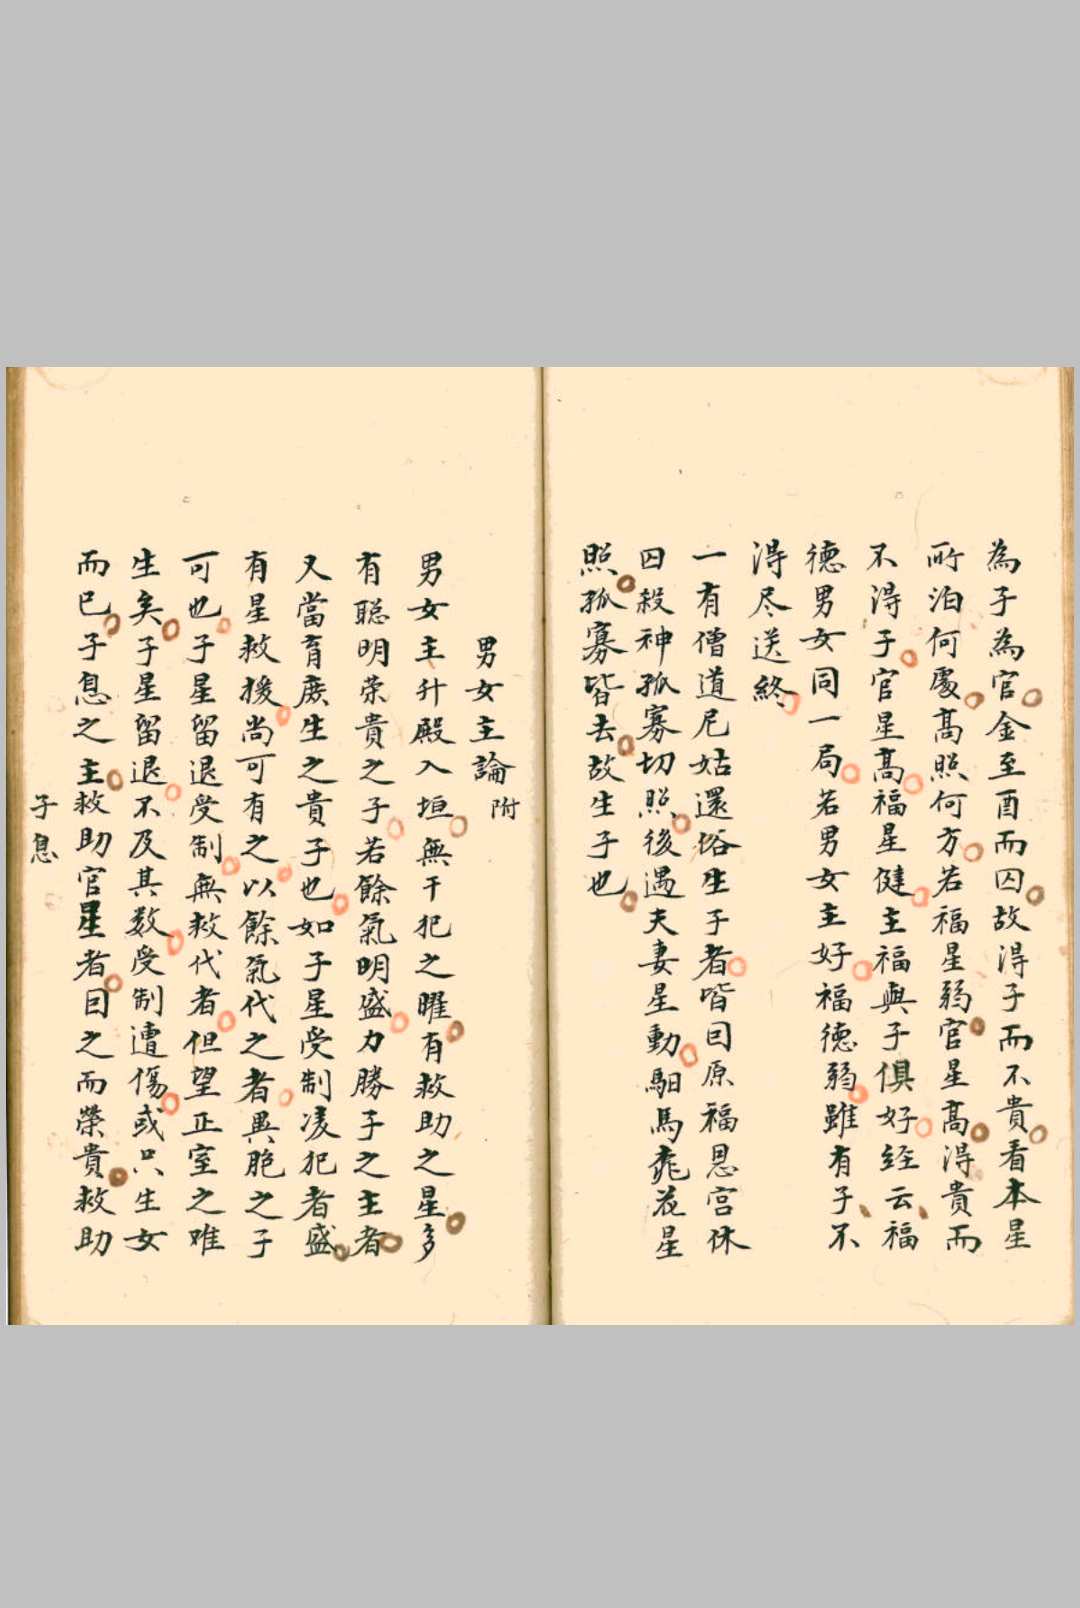 為子為官金至酉而囚故淂子而不貴看本星
所泊何處髙照何方若福星弱官星髙淂貴而
不淂子官星髙福星健主福與子俱好經云福
德男女同一局若男女主好福德弱雖有子不
淂尽送終
一有僧道尼姑還俗生子者皆因原福恩宫休
囚殺神孤寡切照後遇夫妻星動馹馬花星
照孤寡皆去故生子也
男女主論附
男女主升殿入垣無干犯之曜有救助之星多
有聪明荣貴之子若餘氣明盛力勝子之主者
又當育庶生之貴子也如子星受制凌犯者盛
有星救援尚可有之以餘氣代之者異胞之子
可也子星留退受制無救代者但望正室之难
生矣子星留退不及其数受制遭傷或只生女
而已子息之主救助官星者因之而榮貴救助
子息